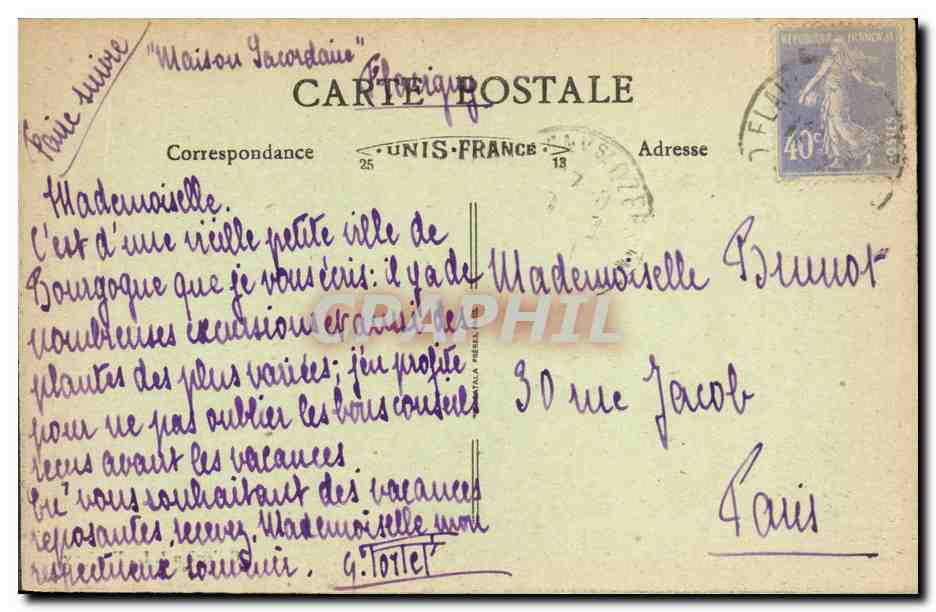 Faire suivre
"Maison Lacordaire"
Flavigny
CARTE POSTALE
Correspondance
UNIS-FRANCE
25
13
Adresse
REPUBLIQUE FRANÇAISE
40c
POSTES
Mademoiselle.
C'est d'une vieille petite ville de
Bourgogne que je vous écris: il y a de
nombreuses excursions et aussi des
plantes des plus variées; j'en profite
pour ne pas oublier les bons conseils
reçus avant les vacances
En vous souhaitant des vacances
reposantes, recevez, Mademoiselle, mon
respectueux souvenir. G. Tortet
Mademoiselle Brunot
30 rue Jacob
Paris
CPAPHIL